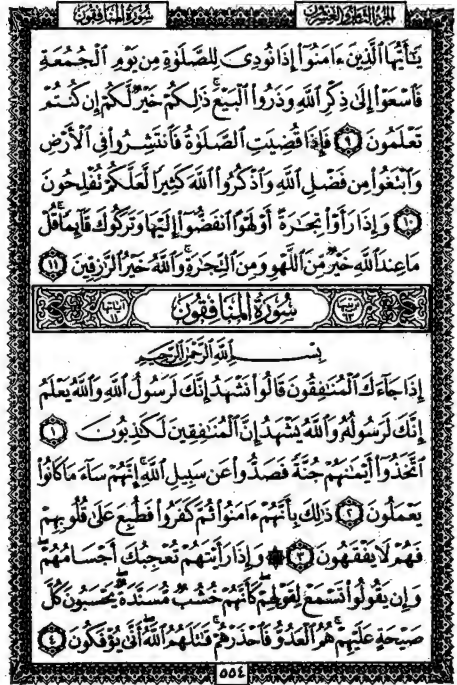 الجزء الثامن والعشرون سورة المنافقون
يَٰٓأَيُّهَا ٱلَّذِينَ ءَامَنُوٓا۟ إِذَا نُودِىَ لِلصَّلَوٰةِ مِن يَوْمِ ٱلْجُمُعَةِ
فَٱسْعَوْا۟ إِلَىٰ ذِكْرِ ٱللَّهِ وَذَرُوا۟ ٱلْبَيْعَ ۚ ذَٰلِكُمْ خَيْرٌ لَّكُمْ إِن كُنتُمْ
تَعْلَمُونَ ٩ فَإِذَا قُضِيَتِ ٱلصَّلَوٰةُ فَٱنتَشِرُوا۟ فِى ٱلْأَرْضِ
وَٱبْتَغُوا۟ مِن فَضْلِ ٱللَّهِ وَٱذْكُرُوا۟ ٱللَّهَ كَثِيرًا لَّعَلَّكُمْ تُفْلِحُونَ
١٠ وَإِذَا رَأَوْا۟ تِجَٰرَةً أَوْ لَهْوًا ٱنفَضُّوٓا۟ إِلَيْهَا وَتَرَكُوكَ قَآئِمًا ۚ قُلْ
مَا عِندَ ٱللَّهِ خَيْرٌ مِّنَ ٱللَّهْوِ وَمِنَ ٱلتِّجَٰرَةِ ۚ وَٱللَّهُ خَيْرُ ٱلرَّٰزِقِينَ ١١
ترتيبها ٦٣ سُورَةُ المُنَافِقُونَ آياتها ١١
بِسْمِ ٱللَّهِ ٱلرَّحْمَٰنِ ٱلرَّحِيمِ
إِذَا جَآءَكَ ٱلْمُنَٰفِقُونَ قَالُوا۟ نَشْهَدُ إِنَّكَ لَرَسُولُ ٱللَّهِ وَٱللَّهُ يَعْلَمُ
إِنَّكَ لَرَسُولُهُۥ وَٱللَّهُ يَشْهَدُ إِنَّ ٱلْمُنَٰفِقِينَ لَكَٰذِبُونَ ١
ٱتَّخَذُوٓا۟ أَيْمَٰنَهُمْ جُنَّةً فَصَدُّوا۟ عَن سَبِيلِ ٱللَّهِ ۚ إِنَّهُمْ سَآءَ مَا كَانُوا۟
يَعْمَلُونَ ٢ ذَٰلِكَ بِأَنَّهُمْ ءَامَنُوا۟ ثُمَّ كَفَرُوا۟ فَطُبِعَ عَلَىٰ قُلُوبِهِمْ
فَهُمْ لَا يَفْقَهُونَ ٣ ۞ وَإِذَا رَأَيْتَهُمْ تُعْجِبُكَ أَجْسَامُهُمْ ۖ
وَإِن يَقُولُوا۟ تَسْمَعْ لِقَوْلِهِمْ ۖ كَأَنَّهُمْ خُشُبٌ مُّسَنَّدَةٌ ۖ يَحْسَبُونَ كُلَّ
صَيْحَةٍ عَلَيْهِمْ ۚ هُمُ ٱلْعَدُوُّ فَٱحْذَرْهُمْ ۚ قَٰتَلَهُمُ ٱللَّهُ ۖ أَنَّىٰ يُؤْفَكُونَ ٤
٥٥٤